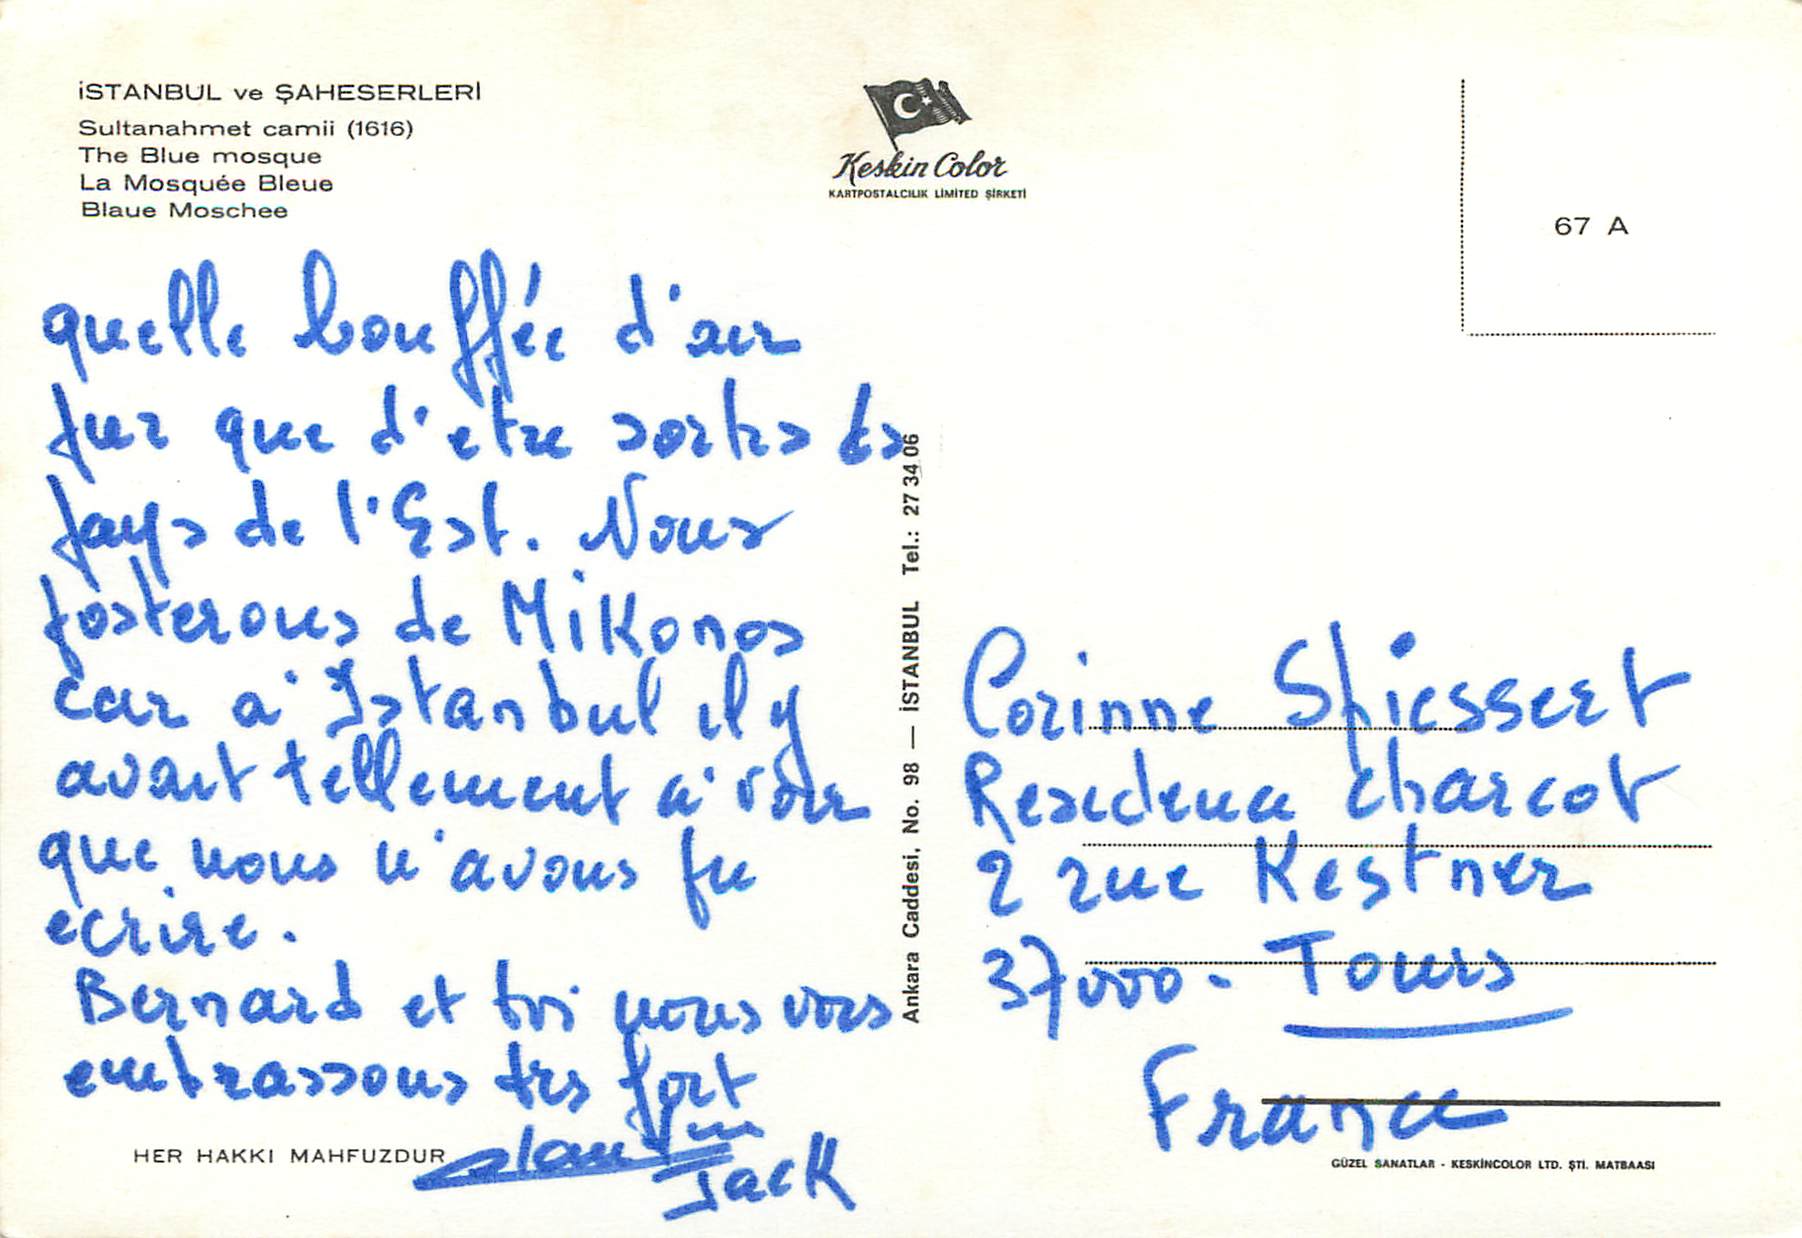 İSTANBUL ve ŞAHESERLERİ
Sultanahmet camii (1616)
The Blue mosque
La Mosquée Bleue
Blaue Moschee
Keskin Color
KARTPOSTALCILIK LİMİTED ŞİRKETİ
67 A
quelle bouffée d'air
pur que d'etre sortis ds
pays de l'Est. Nous
posterons de Mikonos
car a' Istanbul il y
avait tellement a' voir
que nous n'avons pu
ecrire.
Bernard et toi nous vous
embrassons trs fort
Jack
HER HAKKI MAHFUZDUR
Ankara Caddesi, No. 98 — İSTANBUL Tel.: 27 34 06
Corinne Spiessert
Residence Charcot
2 rue Kestner
37000 - Tours
France
GÜZEL SANATLAR - KESKİNCOLOR LTD. ŞTİ. MATBAASI